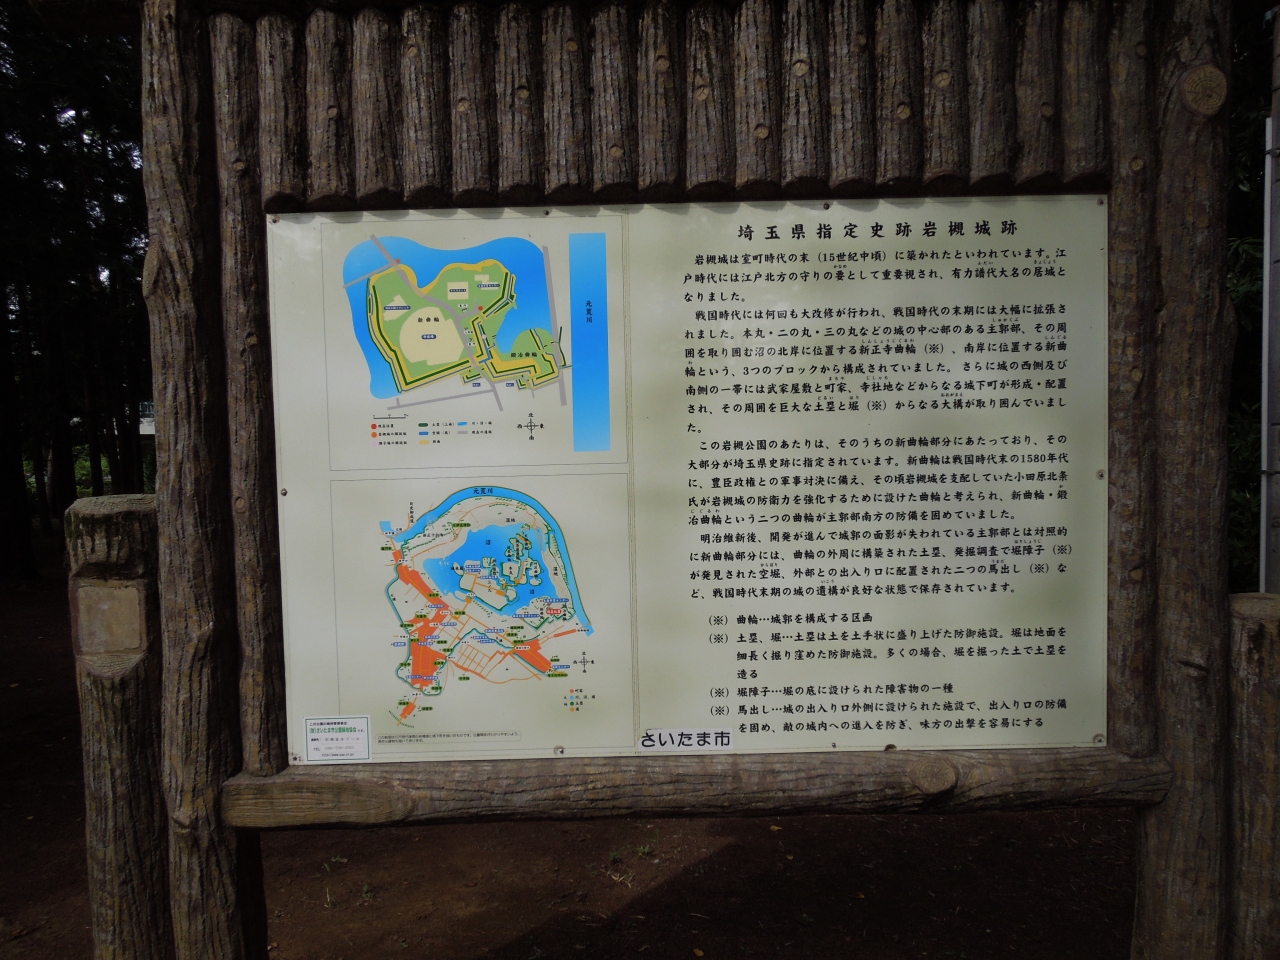 埼玉県指定史跡岩槻城跡
岩槻城は室町時代の末（15世紀中頃）に築かれたといわれています。江
戸時代には江戸北方の守りの要として重要視され、有力譜代大名の居城と
なりました。
戦国時代には何回も大改修が行われ、戦国時代の末期には大幅に拡張さ
れました。本丸・二の丸・三の丸などの城の中心部のある主郭部、その周
囲を取り囲む沼の北岸に位置する新正寺曲輪（※）、南岸に位置する新曲
輪という、3つのブロックから構成されていました。さらに城の西側及び
南側の一帯には武家屋敷と町家、寺社地などからなる城下町が形成・配置
され、その周囲を巨大な土塁と堀（※）からなる大構が取り囲んでいまし
た。
この岩槻公園のあたりは、そのうちの新曲輪部分にあたっており、その
大部分が埼玉県史跡に指定されています。新曲輪は戦国時代末の1580年代
に、豊臣政権との軍事対決に備え、その頃岩槻城を支配していた小田原北条
氏が岩槻城の防衛力を強化するために設けた曲輪と考えられ、新曲輪・鍛
冶曲輪という二つの曲輪が主郭部南方の防備を固めていました。
明治維新後、開発が進んで城郭の面影が失われている主郭部とは対照的
に新曲輪部分には、曲輪の外周に構築された土塁、発掘調査で堀障子（※）
が発見された空堀、外部との出入り口に配置された二つの馬出し（※）な
ど、戦国時代末期の城の遺構が良好な状態で保存されています。
（※） 曲輪…城郭を構成する区画
（※） 土塁、堀…土塁は土を土手状に盛り上げた防御施設。堀は地面を
細長く掘り窪めた防御施設。多くの場合、堀を掘った土で土塁を
造る
（※） 堀障子…堀の底に設けられた障害物の一種
（※） 馬出し…城の出入り口外側に設けられた施設で、出入り口の防備
を固め、敵の城内への進入を防ぎ、味方の出撃を容易にする
さいたま市
元荒川
新曲輪
鍛冶曲輪
北
西
東
南
元荒川
沼
沼